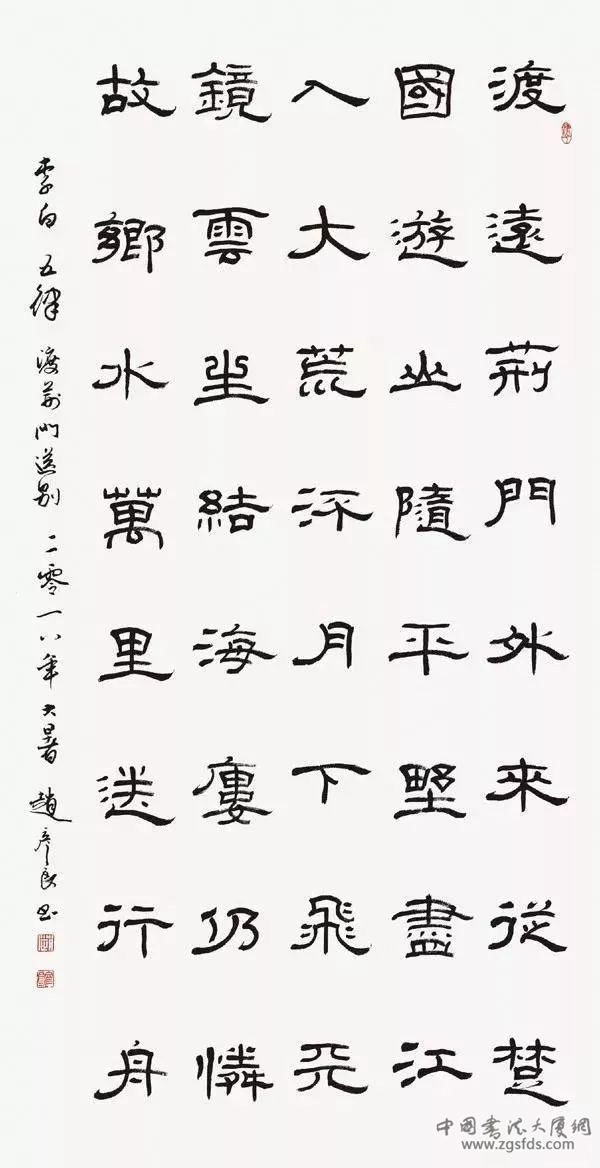 渡遠荊門外來從楚
國游山隨平野盡江
入大荒流月下飛天
鏡雲生結海樓仍憐
故鄉水萬里送行舟
李白 五律 渡荊門送别 二零一八年大暑 趙彦良书
中国書法大厦網
www.zgsfds.com